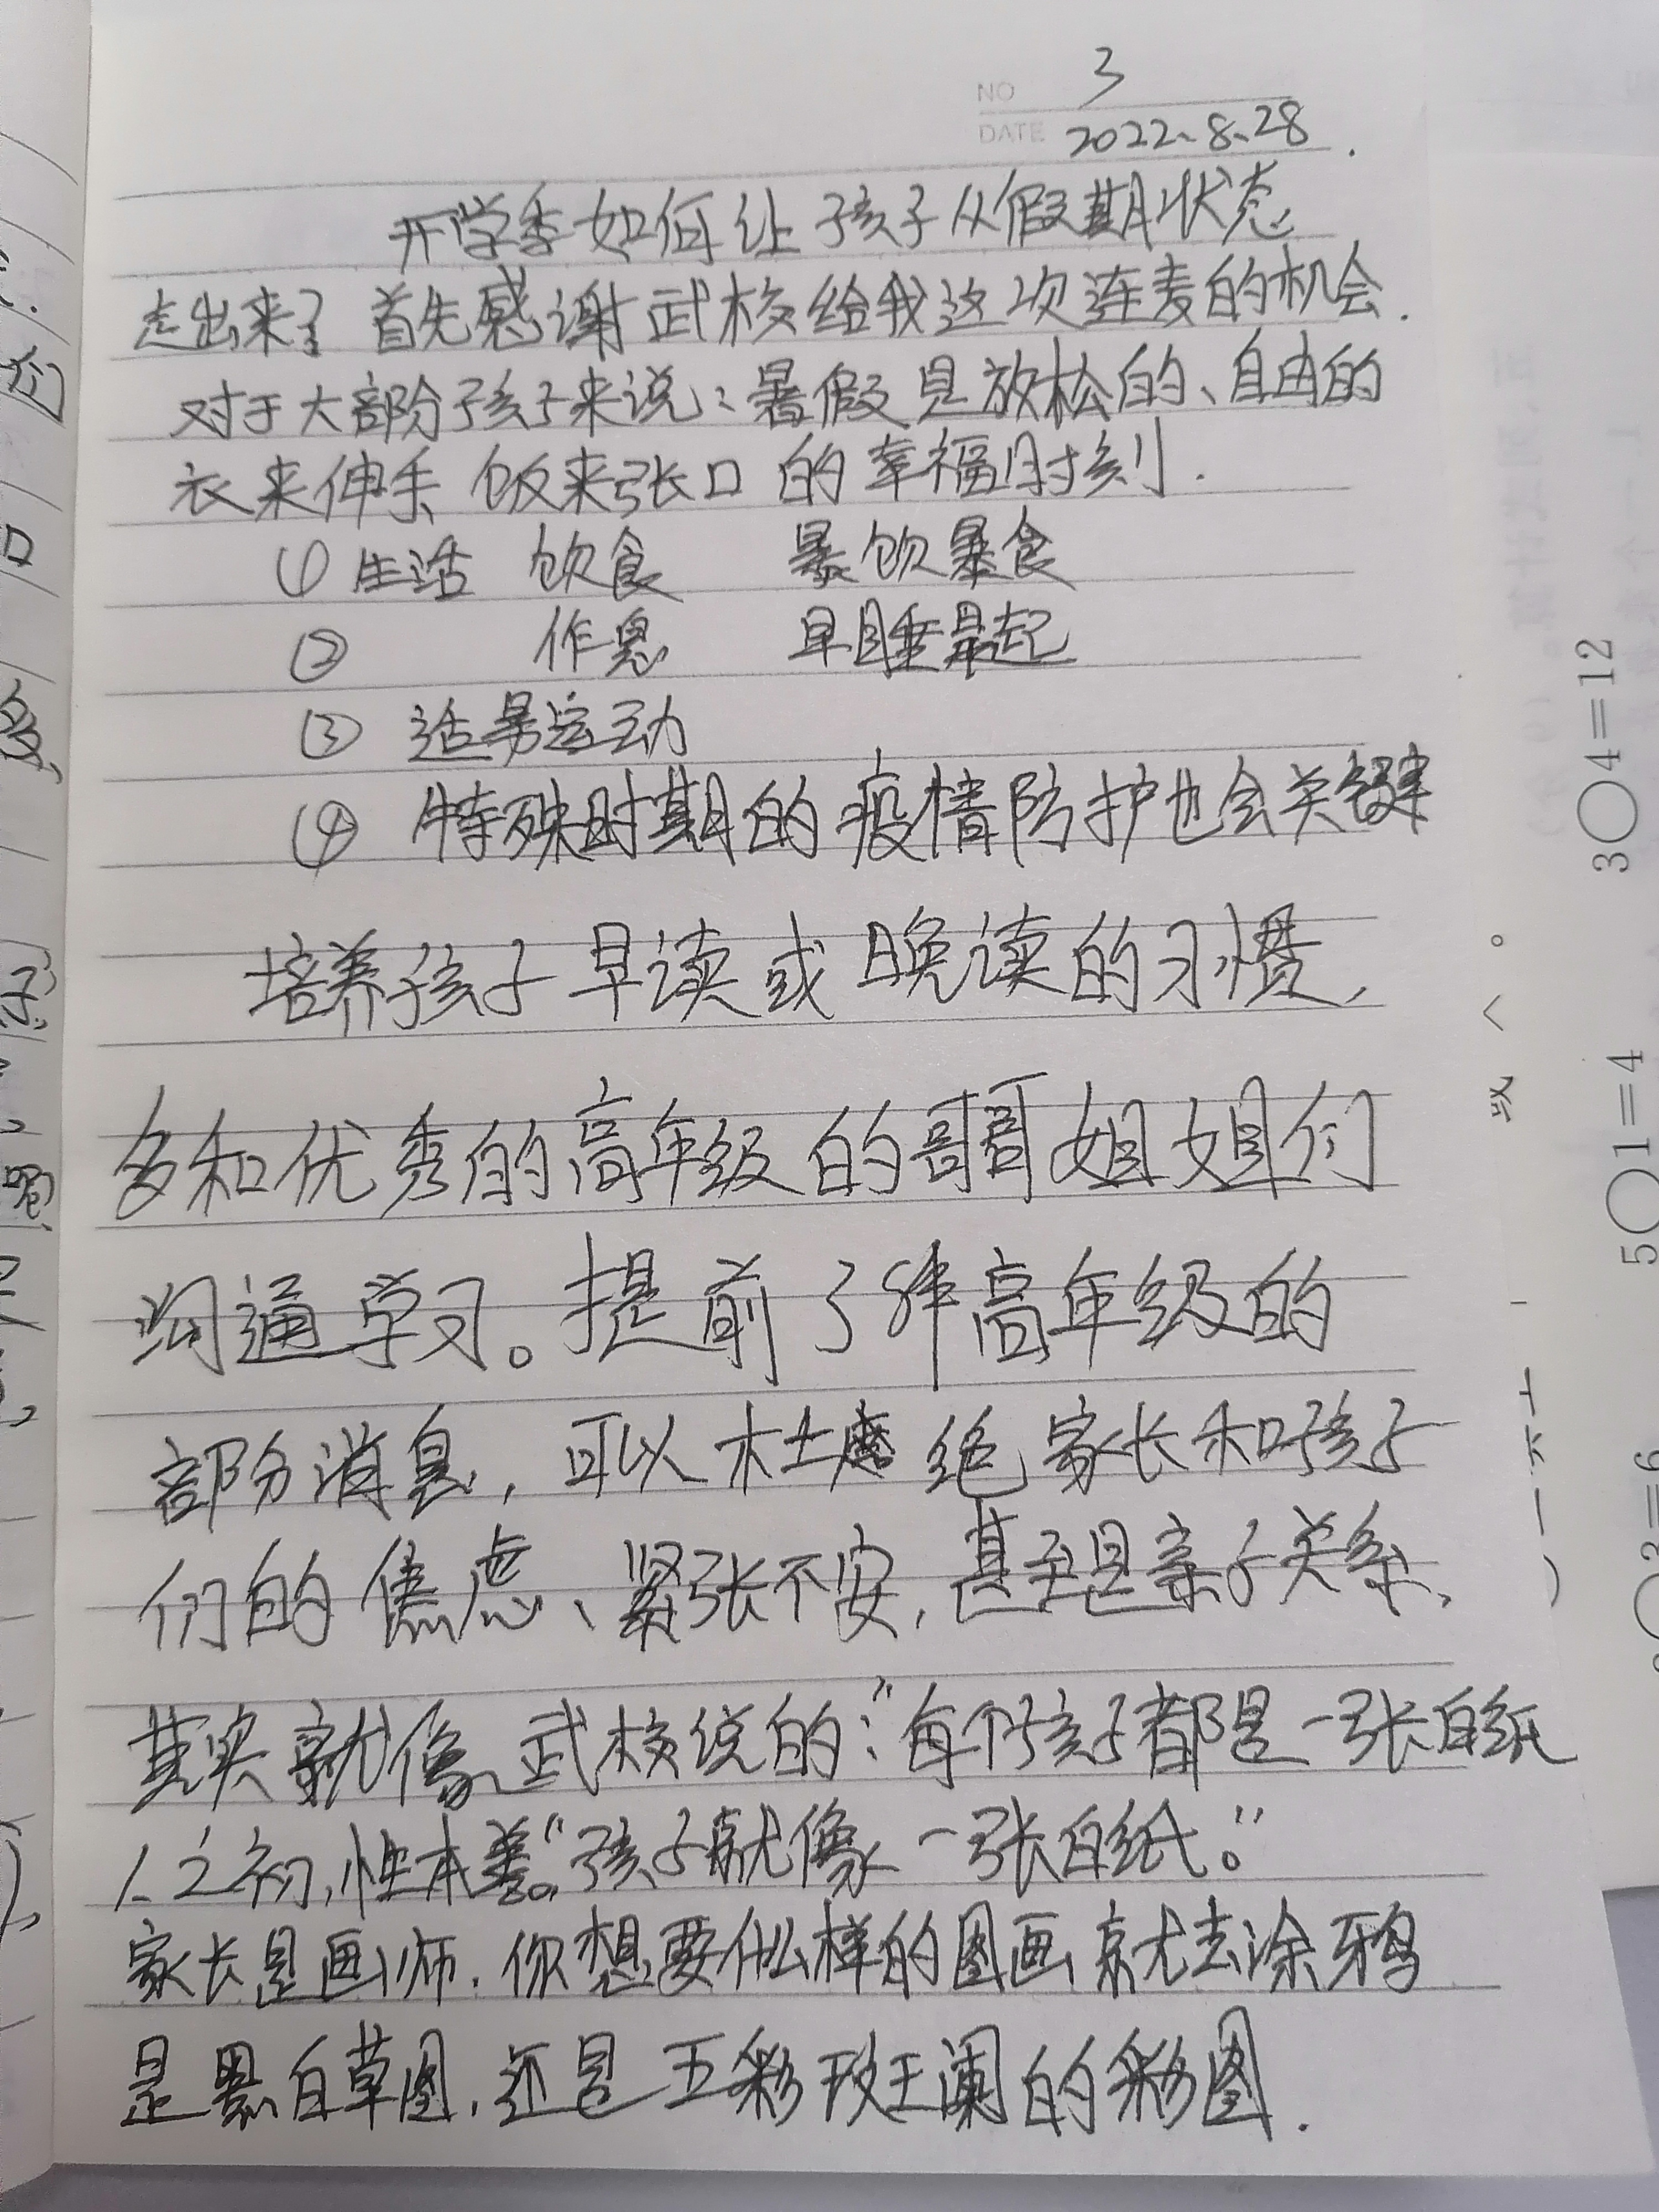 NO 3
DATE 2022、8、28
开学季如何让孩子从假期状态
走出来? 首先感谢武校给我这次连麦的机会.
对于大部份孩子来说:暑假是放松的、自由的
衣来伸手 饭来张口 的幸福时刻.
① 生活 饮食 暴饮暴食
② 作息 早睡早起
③ 适量运动
④ 特殊时期的疫情防护也会关键
培养孩子早读或晚读的习惯,
多和优秀的高年级的哥哥姐姐们
沟通学习。提前了解高年级的
部分消息,可以杜绝家长和孩子
们的焦虑、紧张不安,甚至是亲子关系,
其实就像武校说的:“每个孩子都是一张白纸
人之初,性本善。“孩子就像一张白纸。”
家长是画师.你想要什么样的图画就去涂鸦
是黑白草图,还是五彩斑斓的彩图.
3○4=12
5○1=4